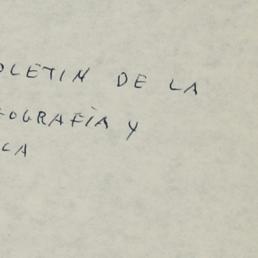 OLETIN DE LA
EOGRAFÍA Y
CA